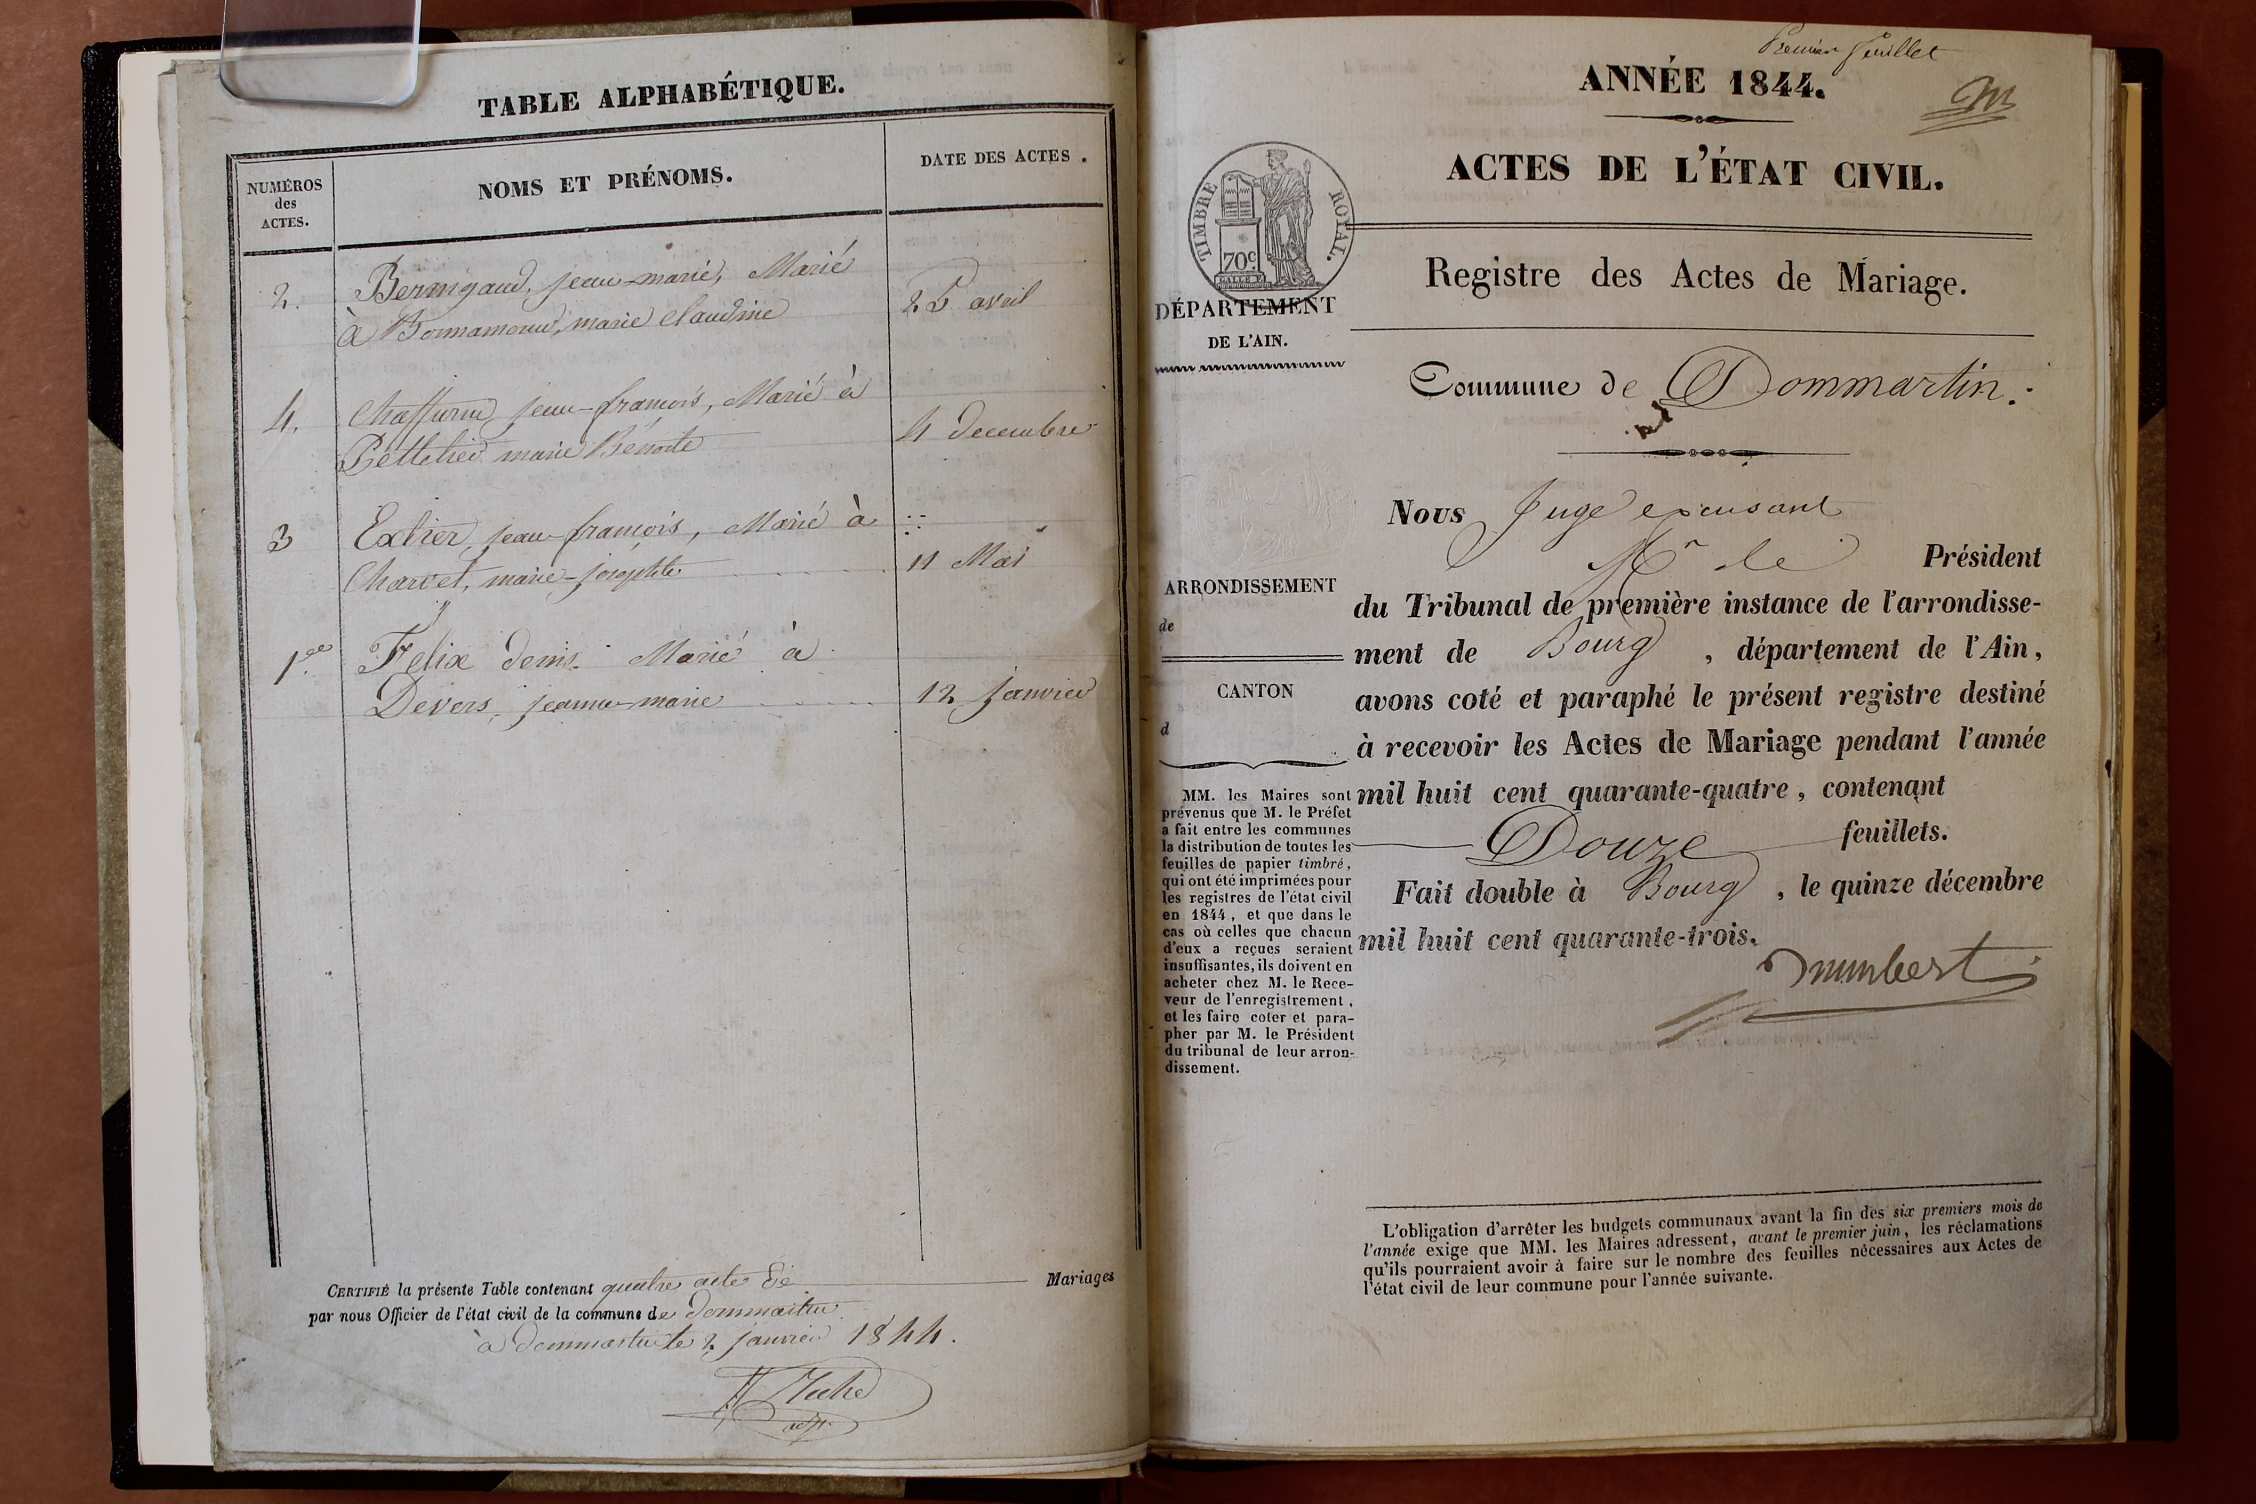 TABLE ALPHABÉTIQUE.
NUMÉROS
des
ACTES.
NOMS ET PRÉNOMS.
DATE DES ACTES.
2. jean-marie, Marié
à marie claudine
avril
4. jean-françois, Marié à
marie Bénoite
4 decembre
3 jean-françois, Marié à
Charvet, marie-josephte
11 Mai
1.er Felix denis. Marié à
Devers, jeanne-marie
12 janvier
CERTIFIÉ la présente Table contenant quatre acte de Mariages
par nous Officier de l'état civil de la commune de dommartin
à dommartin le 2 janvier 1844.
Premier feuillet
ANNÉE 1844.
ACTES DE L'ÉTAT CIVIL.
TIMBRE ROYAL.
70c
DÉPARTEMENT
DE L'AIN.
Registre des Actes de Mariage.
Commune de Dommartin.
ARRONDISSEMENT
de
CANTON
d
MM. les Maires sont
prévenus que M. le Préfet
a fait entre les communes
la distribution de toutes les
feuilles de papier timbré,
qui ont été imprimées pour
les registres de l'état civil
en 1844, et que dans le
cas où celles que chacun
d'eux a reçues seraient
insuffisantes, ils doivent en
acheter chez M. le Rece-
veur de l'enregistrement,
et les faire coter et para-
pher par M. le Président
du tribunal de leur arron-
dissement.
Nous Juge
Mr le Président
du Tribunal de première instance de l'arrondisse-
ment de Bourg, département de l'Ain,
avons coté et paraphé le présent registre destiné
à recevoir les Actes de Mariage pendant l'année
mil huit cent quarante-quatre, contenant
Douze feuillets.
Fait double à Bourg, le quinze décembre
mil huit cent quarante-trois.
L'obligation d'arrêter les budgets communaux avant la fin des six premiers mois de
l'année exige que MM. les Maires adressent, avant le premier juin, les réclamations
qu'ils pourraient avoir à faire sur le nombre des feuilles nécessaires aux Actes de
l'état civil de leur commune pour l'année suivante.